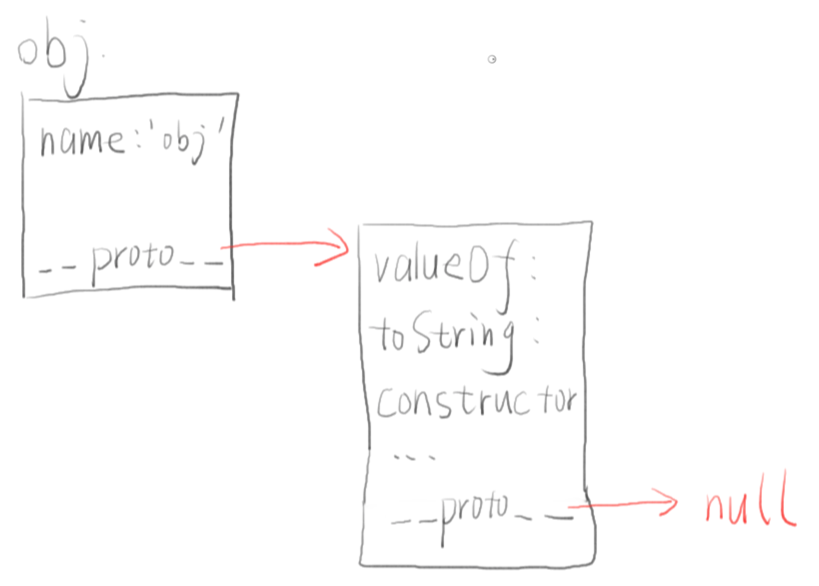 obj.
name:'obj'
__proto__
valueOf:
toString:
constructor
...
__proto__
null